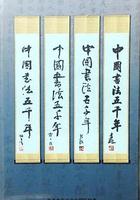 中國書法五千年
中國書法五千年
中國書法五千年
中國書法五千年